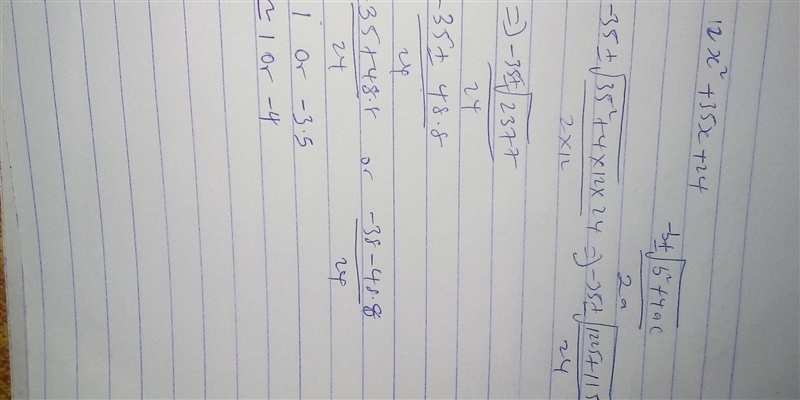 12x² + 35x + 24
-b±√b²+4ac
2a
-35±√35²+4×12×24 ⇒ -35±√1225+115
2×12
24
⇒ -35±√2377
24
-35± 48.8
24
35+48.8 or -35-48.8
24
24
1 or -3.5
≈ 1 or -4